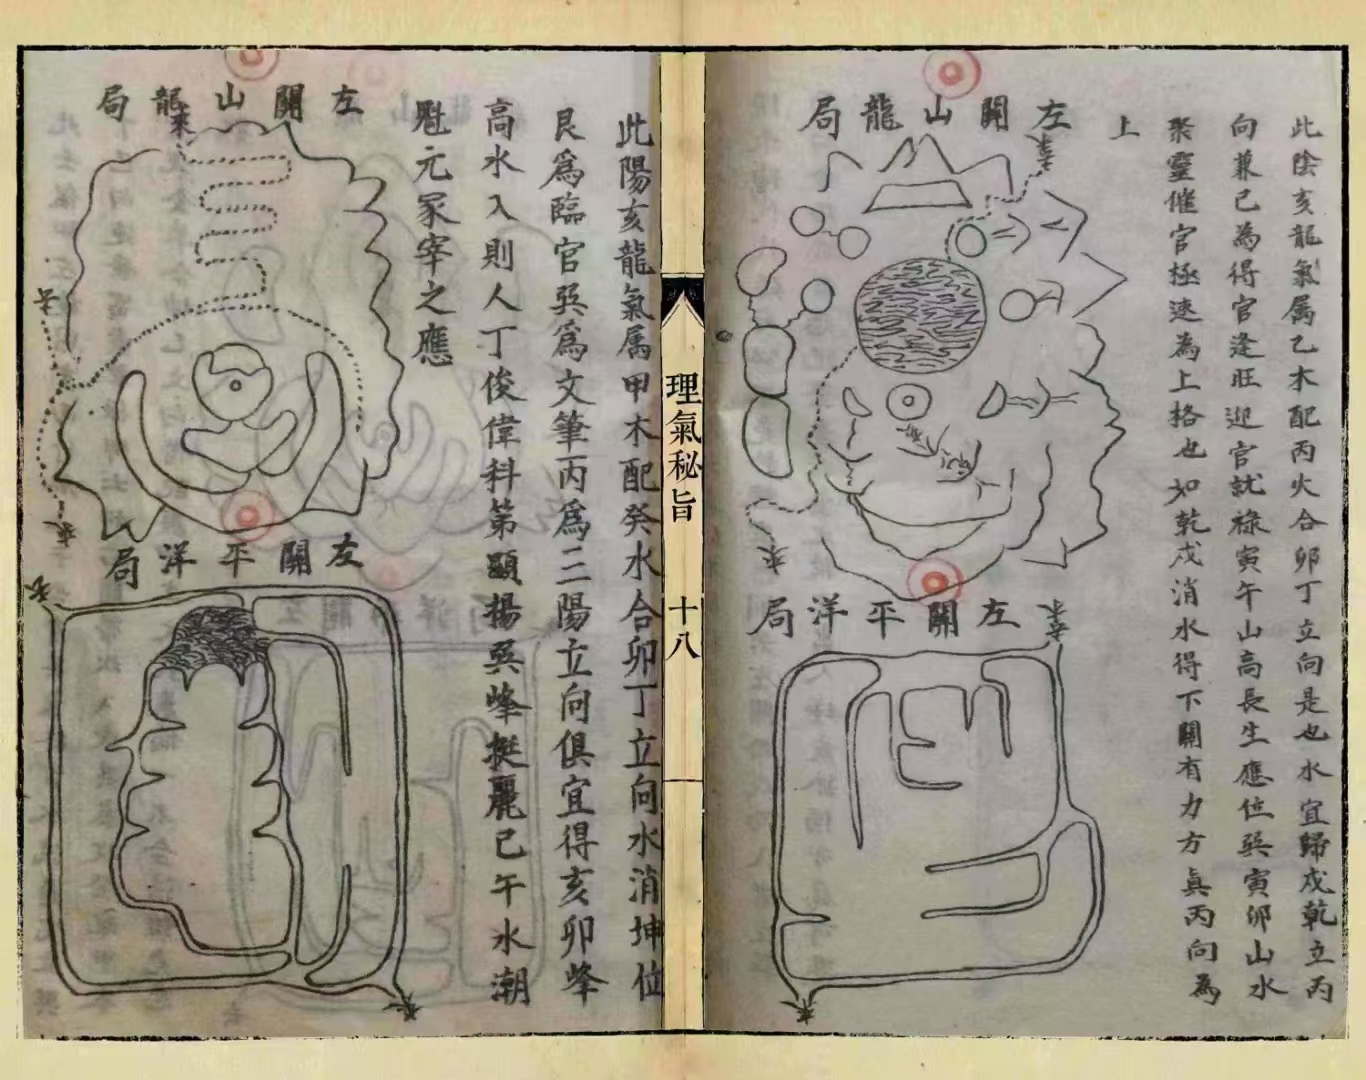 此陰亥龍氣属乙木配丙火合卯丁立向是也水宜歸戌乾立丙
向兼巳為得官逢旺迎官就祿寅午山高長生應位巽寅卯山水
聚靈催官極速為上格也如乾戌消水得下關有力方真丙向為
上
左關山龍局
左關平洋局
理氣秘旨
十八
此陽亥龍氣属甲木配癸水合卯丁立向水消坤位
艮爲臨官巽爲文筆丙爲三陽立向俱宜得亥卯峰
高水入則人丁俊偉科第顯揚巽峰挺麗巳午水潮
魁元冢宰之應
左關山龍局
來
左關平洋局